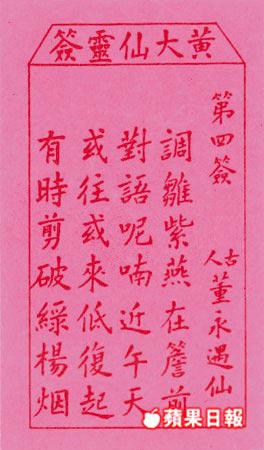 黃大仙靈簽
第四簽
古人 董永遇仙
調雛紫燕在簷前
對語呢喃近午天
或往或來低復起
有時剪破綠楊烟
蘋果日報